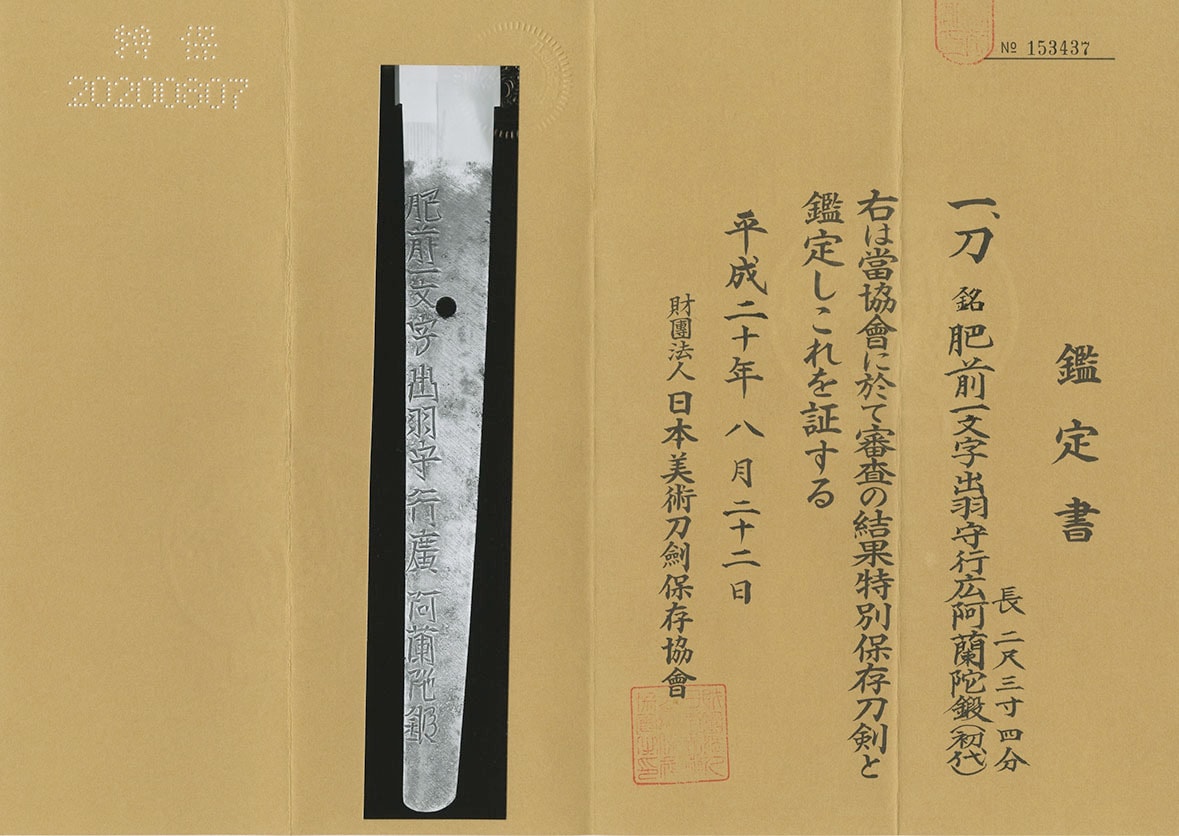 № 153437
鑑定書
長 二尺三寸四分
一、刀 銘 肥前一文字出羽守行広阿蘭陀鍛(初代)
右は當協會に於て審査の結果特別保存刀剣と
鑑定しこれを証する
平成二十年八月二十二日
財團法人日本美術刀劍保存協會
肥前一文字出羽守行廣 阿蘭陀鍛
特保